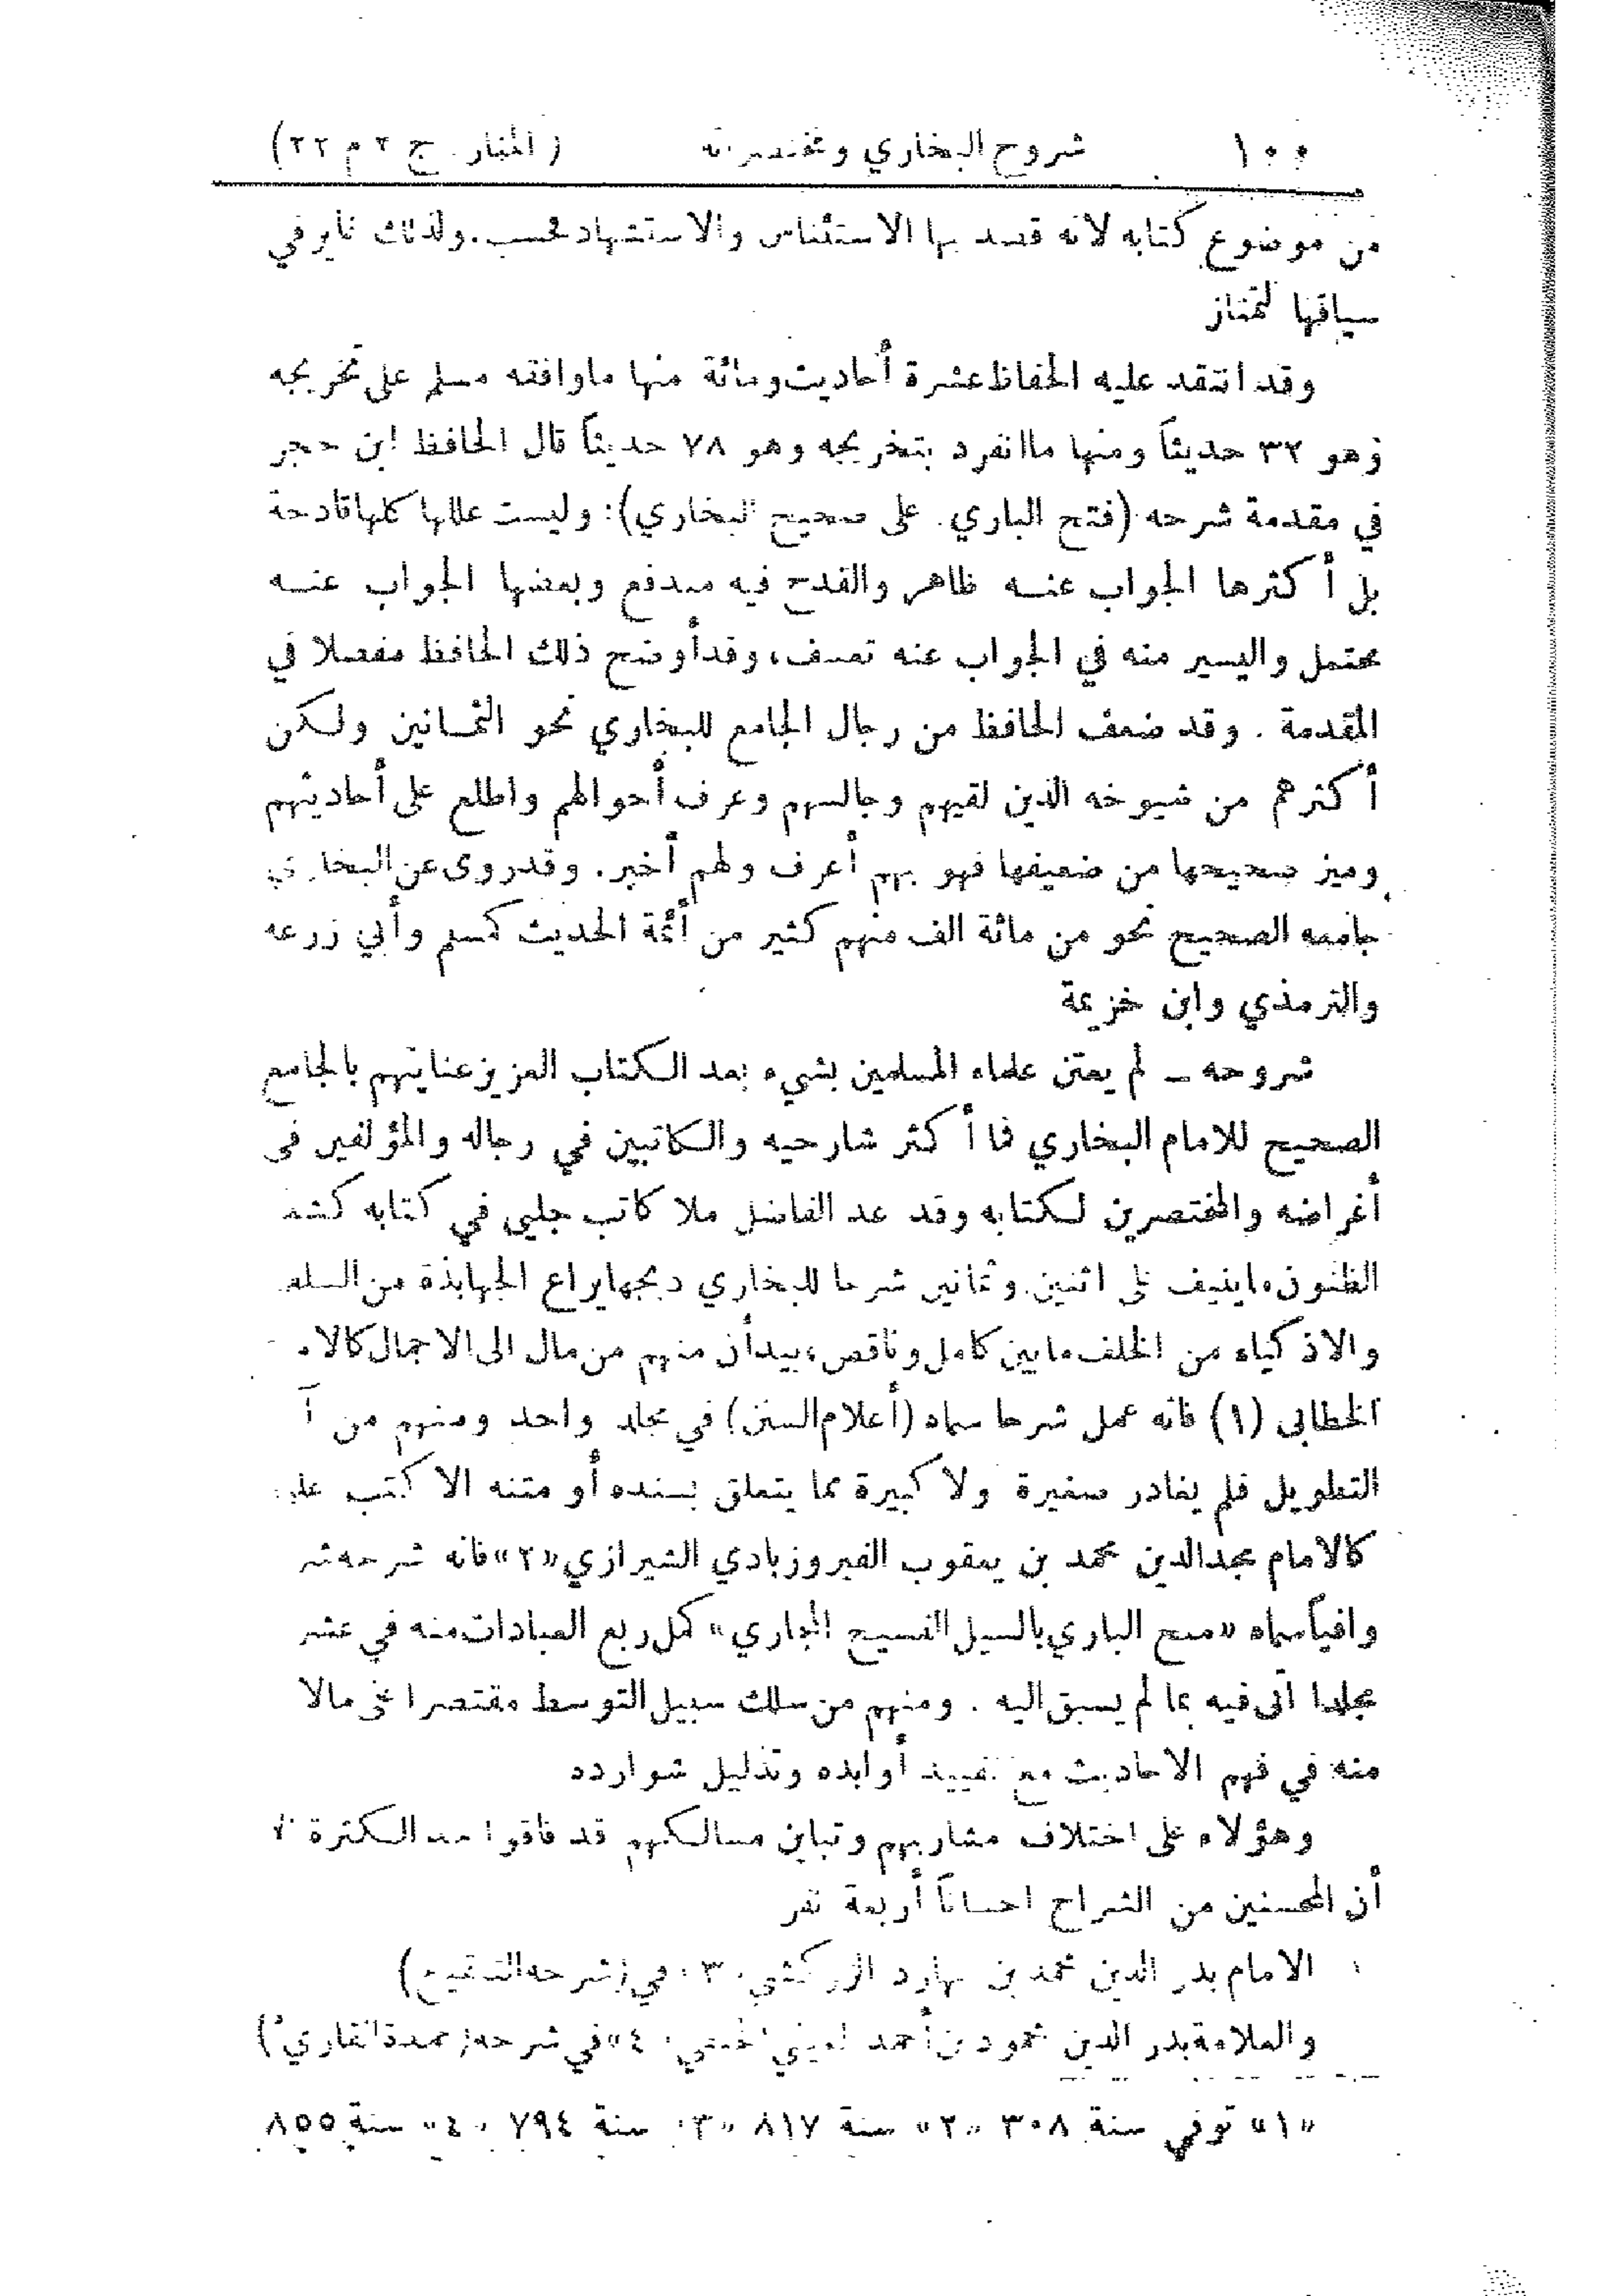 ١٠٠ شروح البخاري ومختصراته (المنار. ج ٢ م ٢٢)
من موضوع كتابه لانه قصد بها الاستئناس والاستشهاد فحسب. ولذلك غاير في
سياقها لتمتاز
وقد انتقد عليه الحفاظ عشرة أحاديث ومائة منها ماوافقه مسلم على تخريجه
وهو ٣٢ حديثاً ومنها ما انفرد بتخريجه وهو ٧٨ حديثاً قال الحافظ ابن حجر
في مقدمة شرحه (فتح الباري. على صحيح البخاري): وليست عللها كلها قادحة
بل أكثرها الجواب عنه ظاهر والقدح فيه مندفع وبعضها الجواب عنه
محتمل واليسير منه في الجواب عنه تعسف، وقد أوضح ذلك الحافظ مفصلا في
المقدمة . وقد ضعف الحافظ من رجال الجامع للبخاري نحو الثمانين ولكن
أكثرهم من شيوخه الذين لقيهم وجالسهم وعرف أحوالهم واطلع على أحاديثهم
وميز صحيحها من ضعيفها فهو بهم أعرف ولهم أخبر. وقد روى عن البخاري
جامعه الصحيح نحو من مائة الف منهم كثير من أئمة الحديث كمسلم وأبي زرعه
والترمذي وابن خزيمة
شروحه ــ لم يعتن علماء المسلمين بشيء بعد الكتاب العزيز عنايتهم بالجامع
الصحيح للامام البخاري فما أكثر شارحيه والكاتبين في رجاله والمؤلفين في
أغراضه والمختصرين لكتابه وقد عد الفاضل ملا كاتب جلبي في كتابه كشف
الظنون ما ينيف على اثنين وثمانين شرحا للبخاري دبجها يراع الجهابذة من السلف
والاذكياء من الخلف ما بين كامل وناقص، بيد أن منهم من مال الى الاجمال
الخطابي (١) فانه عمل شرحا سماه (أعلام السنن) في مجلد واحد ومنهم من
التطويل فلم يغادر صغيرة ولا كبيرة مما يتعلق بسنده أو متنه الا كتب عليه
كالامام مجد الدين محمد بن يعقوب الفيروزبادي الشيرازي «٢» فانه شرحه
وافياً سماه «منح الباري بالسيل الفسيح المجاري» كمل ربع العبادات منه في عشر
مجلدا أتى فيه بما لم يسبق اليه . ومنهم من سلك سبيل التوسط مقتصرا على مالا
منه في فهم الاحاديث مع تقييد أوابده وتذليل شوارده
وهؤلاء على اختلاف مشاربهم وتباين مسالكهم قد فاقوا حد الكثرة
أن المحسنين من الشراح احساناً أربعة نفر
الامام بدر الدين محمد بن بهادر الزركشي «٣» في (شرحه التنقيح)
والعلامة بدر الدين محمود بن أحمد العيني الحنفي «٤» في شرحه (عمدة القاري)
«١» توفي سنة ٣٠٨ «٢» سنة ٨١٧ «٣» سنة ٧٩٤ «٤» سنة ٨٥٥